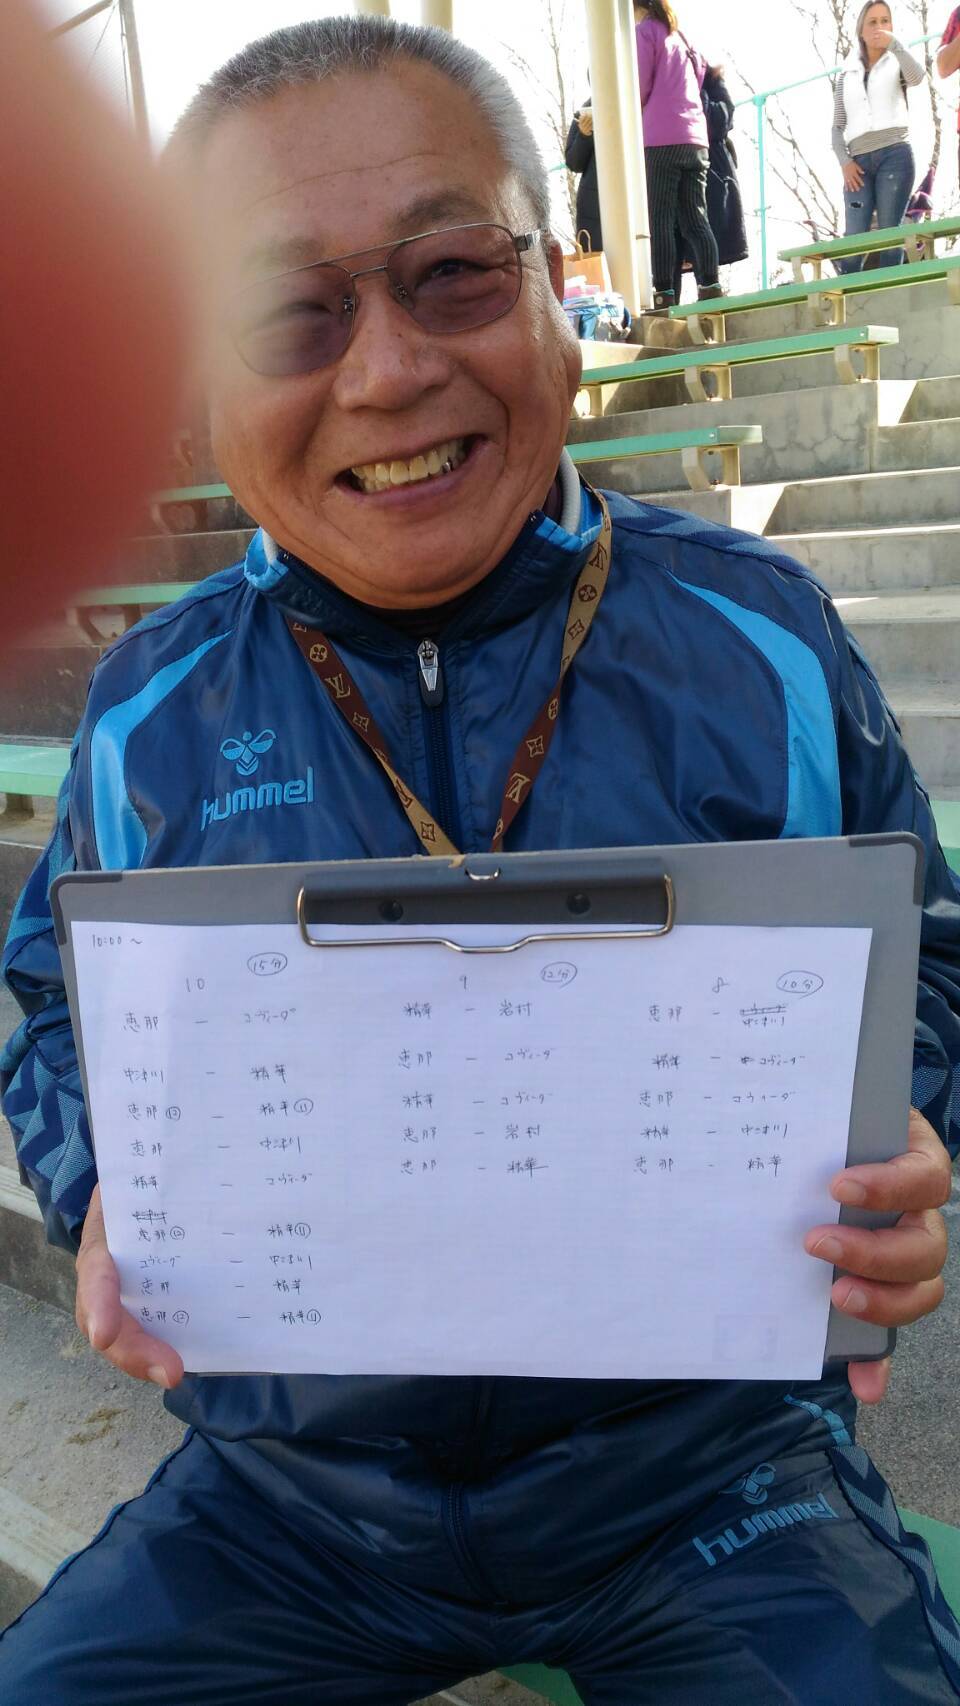 hummel
10:00〜
10 15分
恵那 — コヴィーダ
中津川 — 精華
恵那⑫ — 精華⑪
恵那 — 中津川
精華 — コヴィーダ
恵那⑫ — 精華⑪
コヴィーダ — 中津川
恵那 — 精華
恵那⑫ — 精華⑪
9 12分
精華 — 岩村
恵那 — コヴィーダ
精華 — コヴィーダ
恵那 — 岩村
恵那 — 精華
8 10分
恵那 — コヴィーダ
中津川
精華 — コヴィーダ
恵那 — コヴィーダ
精華 — 中津川
恵那 — 精華
hummel